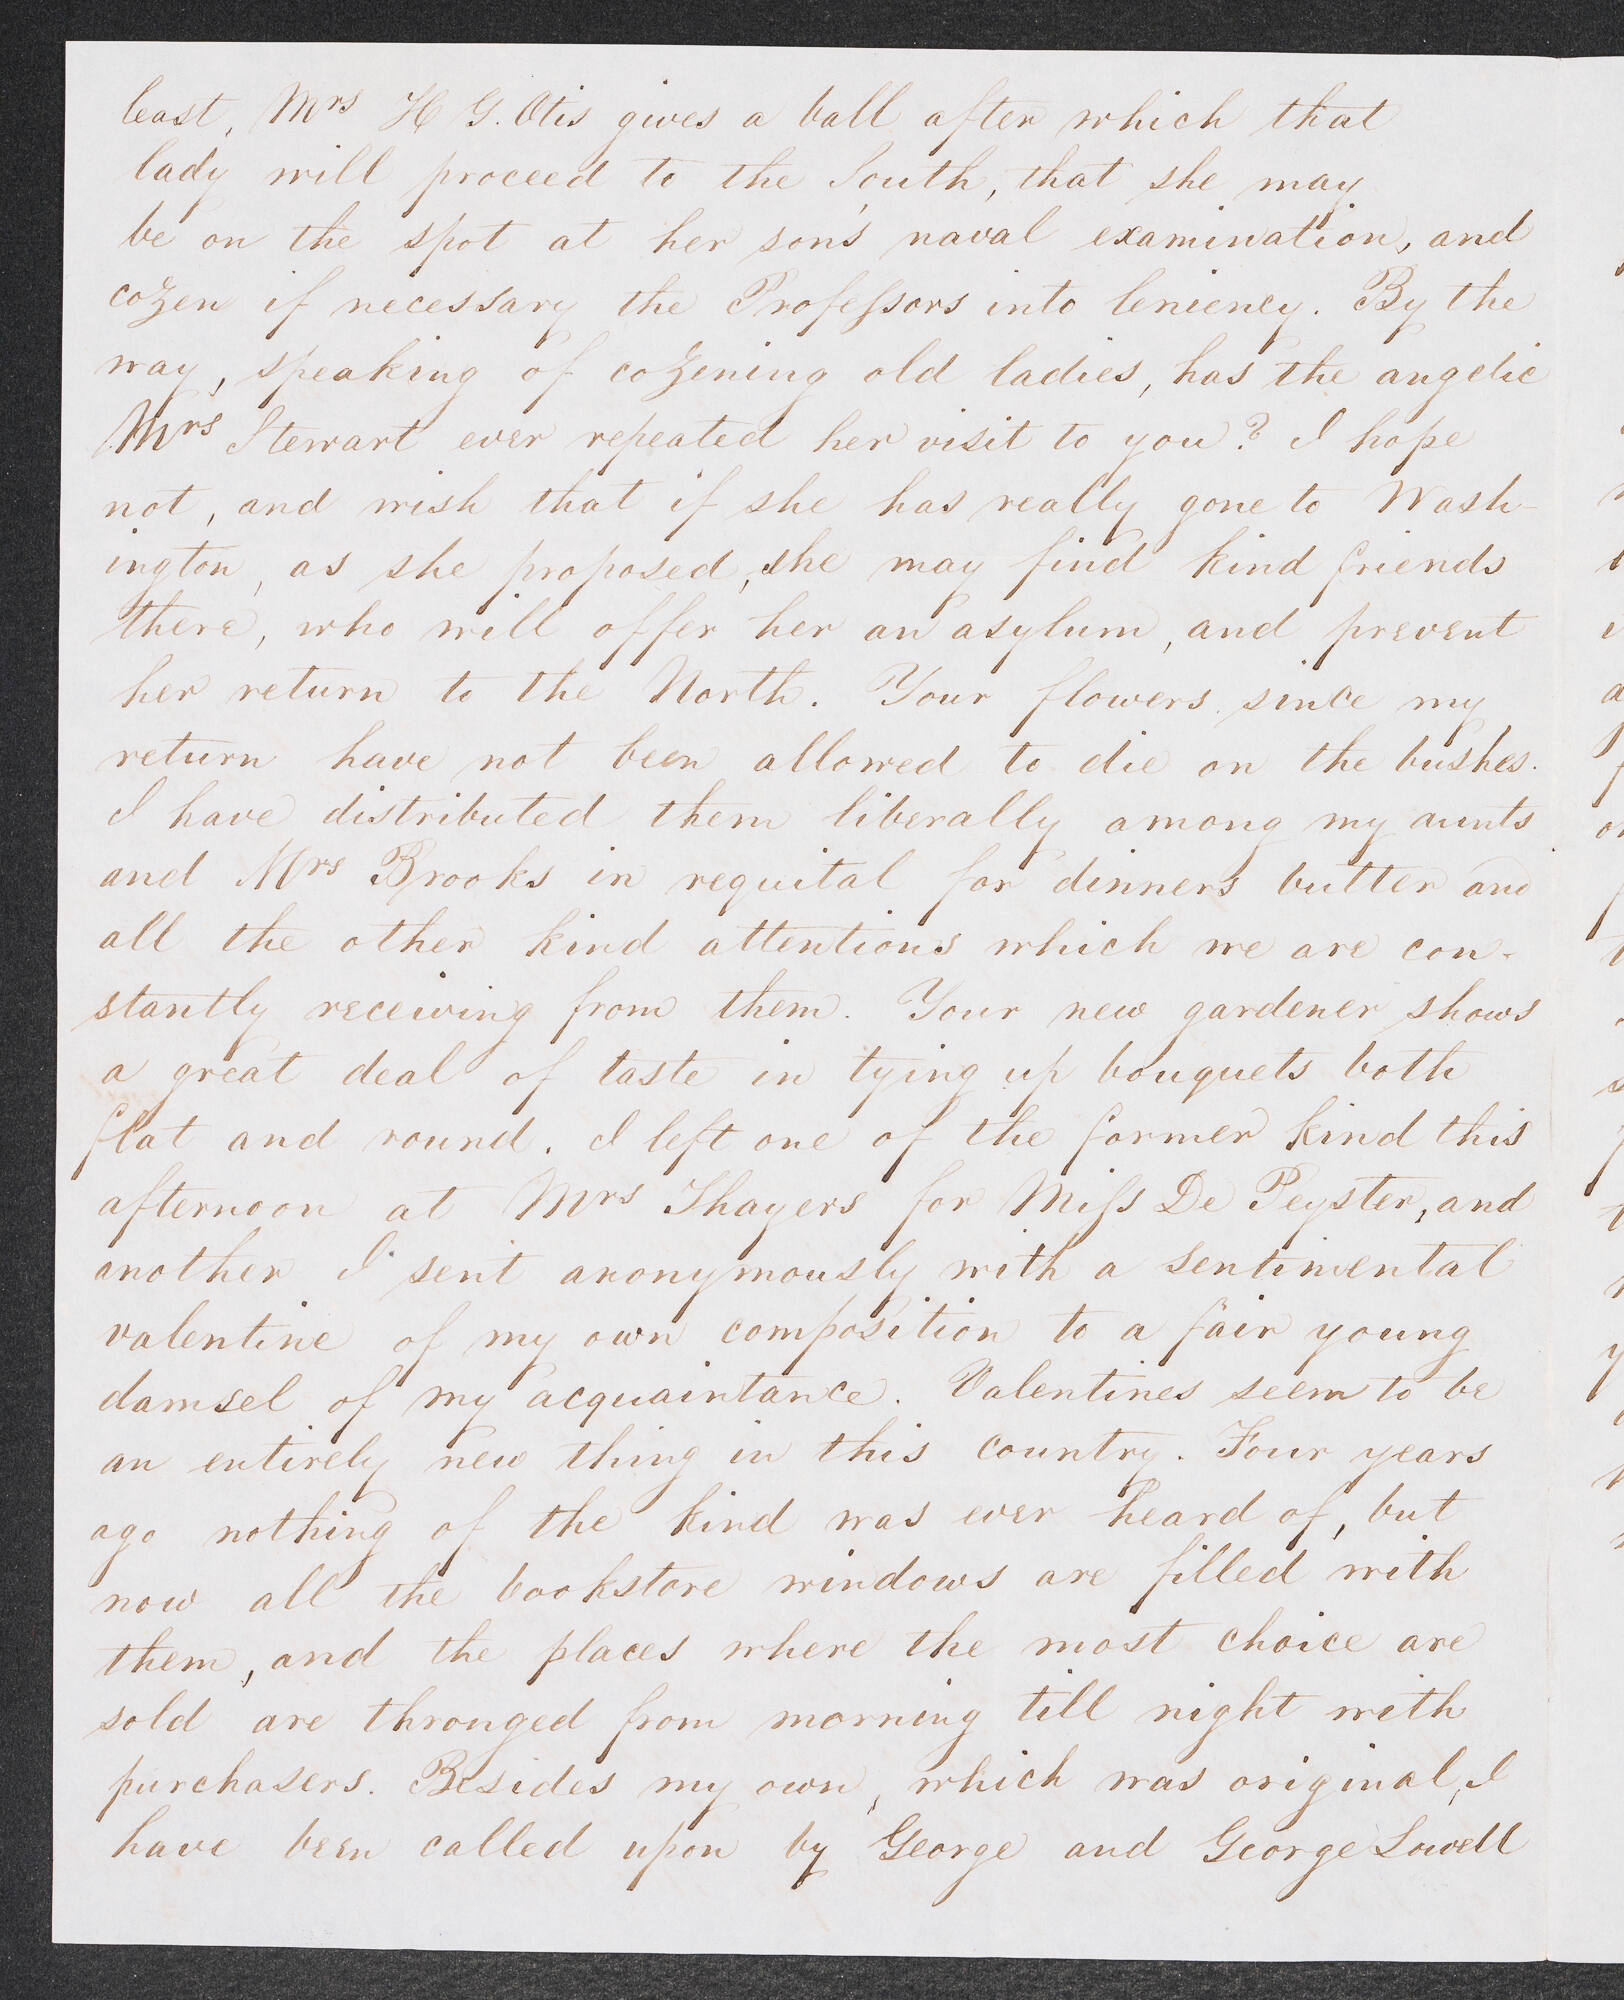 least, Mrs H G. Otis gives a ball after which that
lady will proceed to the South, that she may
be on the spot at her son's naval examination, and
cozen if necessary the Professors into leniency. By the
way, speaking of cozening old ladies, has the angelic
Mrs Stewart ever repeated her visit to you? I hope
not, and wish that if she has really gone to Wash-
ington, as she proposed, she may find kind friends
there, who will offer her an asylum, and prevent
her return to the North. Your flowers since my
return have not been allowed to die on the bushes.
I have distributed them liberally among my aunts
and Mrs Brooks in requital for dinners butter and
all the other kind attentions which we are con-
stantly receiving from them. Your new gardener shows
a great deal of taste in tying up bouquets both
flat and round. I left one of the former kind this
afternoon at Mrs Thayers for Miss De Peyster, and
another I sent anonymously with a sentimental
valentine of my own composition to a fair young
damsel of my acquaintance. Valentines seem to be
an entirely new thing in this country. Four years
ago nothing of the kind was ever heard of, but
now all the bookstore windows are filled with
them, and the places where the most choice are
sold are thronged from morning till night with
purchasers. Besides my own, which was original, I
have been called upon by George and George Lowell